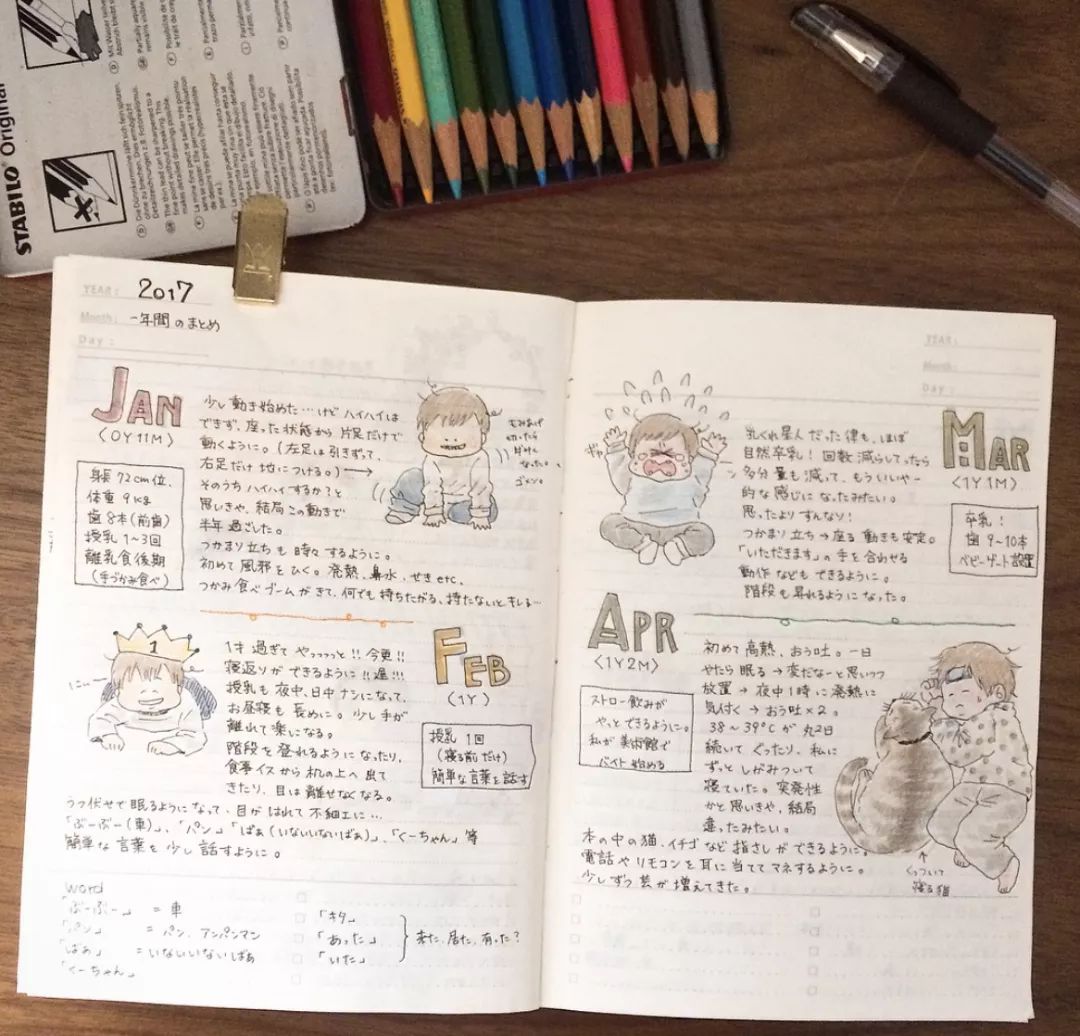 STABILO® Original
YEAR: 2017
Month: 一年間のまとめ
Day:
JAN
〈0Y11M〉
身長 72cm位、
体重 9kg
歯 8本(前歯)
授乳 1~3回
離乳食後期
(手づかみ食べ)
少し動き始めた…けど ハイハイは
できず、座った状態から 片足だけで
動くように。(左足は引きずって、
右足だけ 地につける。)→
そのうち ハイハイするか?と
思いきや、結局 この動きで
半年 過ごした。
つかまり立ちも 時々 するように。
初めて 風邪をひく。発熱、鼻水、せき etc.
つかみ食べブームがきて、何でも 持ちたがる、持たないとキレる…
もみあげ
切ったら
ゴメン。
FEB
〈1Y〉
授乳 1回
(寝る前だけ)
簡単な言葉を話す
1
1才 過ぎて やっっっっと!!今更!!
寝返りが できるように!!遅!!!
授乳も 夜中、日中 ナシになって、
お昼寝も 長めに。少し手が
離れて楽になる。
階段を登れるようになったり、
食事イスから 机の上へ 出て
きたり、目は離せなくなる。
うつ伏せで眠るようになって、目が はれて 不細工に…
「ぶーぶー(車)」、「パン」「ばぁ(いないいないばぁ)」、「くーちゃん」等
簡単な 言葉を 少し 話すように。
word
「ぶーぶー」 = 車
「パン」 = パン、アンパンマン
「ばぁ」 = いないいないばぁ
「くーちゃん」
「キタ」
「あった」
「いた」
来た、居た、有った?
YEAR:
Month:
Day:
MAR
〈1Y1M〉
卒乳!
歯 9~10本
ベビーゲート設置
乳くれ星人だった 律も、ほぼ
自然卒乳!回数 減らしてったら
多分 量も 減って、もういいやー
的な感じに なったみたい。
思ったより すんなり!
つかまり立ち→座る 動きも安定。
「いただきます」の手を合わせる
動作なども できるように。
階段も昇れるようになった。
APR
〈1Y2M〉
ストロー飲みが
やっとできるように。
私が 美術館で
バイト 始める
初めて 高熱、おう吐。一日
やたら 眠る→変だなーと 思いつつ
放置→夜中1時に 発熱に
気付く→おう吐×2。
38~39℃が 丸2日
続いて ぐったり、私に
ずっと しがみついて
寝ていた。突発性
かと思いきや、結局
違ったみたい。
本の中の猫、イチゴ など 指さしが できるように。
電話や リモコンを 耳に 当てて マネするように。
少しずつ 芸が 増えてきた。
くっついて
寝る猫